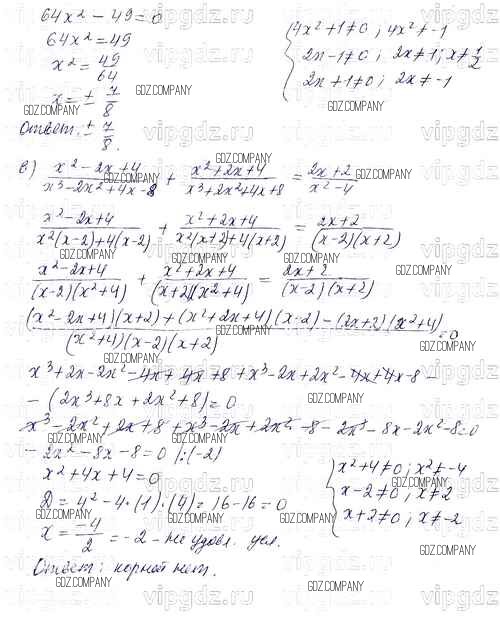 64x² - 49 = 0
64x² = 49
x² = 49/64
x = ± 7/8
Ответ: ± 7/8.
{ 4x²+1≠0; 4x²≠-1
2x-1≠0; 2x≠1; x≠1/2
2x+1≠0; 2x≠-1
в) (x²-2x+4)/(x³-2x²+4x-8) + (x²+2x+4)/(x³+2x²+4x+8) = (2x+2)/(x²-4)
(x²-2x+4)/(x²(x-2)+4(x-2)) + (x²+2x+4)/(x²(x+2)+4(x+2)) = (2x+2)/((x-2)(x+2))
(x²-2x+4)/((x-2)(x²+4)) + (x²+2x+4)/((x+2)(x²+4)) = (2x+2)/((x-2)(x+2))
((x²-2x+4)(x+2)+(x²+2x+4)(x-2)-(2x+2)(x²+4))/((x²+4)(x-2)(x+2)) = 0
x³+2x-2x²-4x+4x+8+x³-2x+2x²-4x+4x-8-
-(2x³+8x+2x²+8)=0
x³-2x²+2x+8+x³-2x+2x²-8-2x³-8x-2x²-8=0
-2x²-8x-8=0 |:(-2)
x²+4x+4=0
Д=4²-4·(1)·(4)=16-16=0
x = -4/2 = -2 - не удовл. усл.
Ответ: корней нет.
{ x²+4≠0; x²≠-4
x-2≠0; x≠2
x+2≠0; x≠-2
GDZ.COMPANY
vipgdz.ru